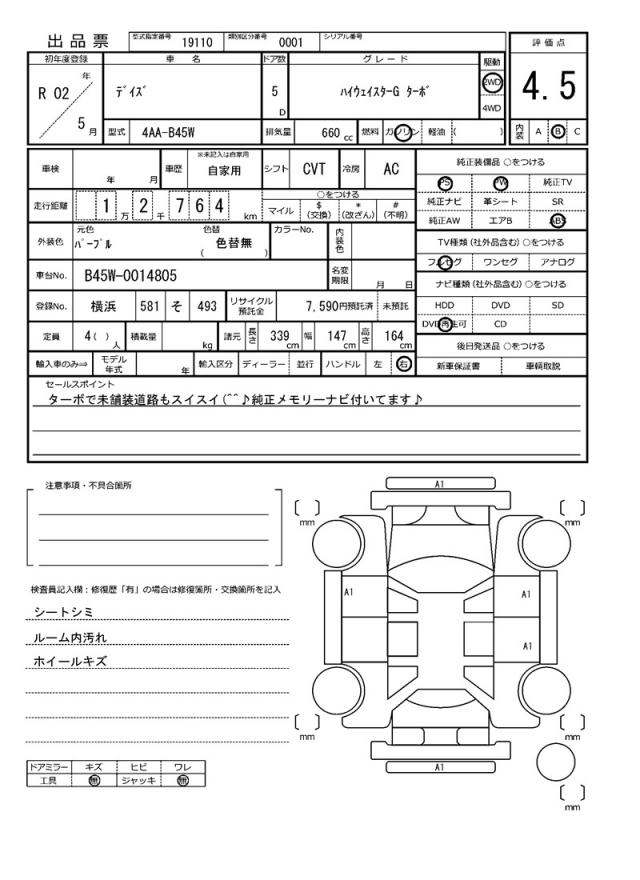 出品票 型式指定番号 19110 類別区分番号 0001 シリアル番号
評価点
4.5
内装 A B C
初年度登録 車名 ドア数 グレード 駆動
R 02 年 5 月 デイズ 5 D ハイウェイスターG ターボ 2WD 4WD
型式 4AA-B45W 排気量 660 cc 燃料 ガソリン 軽油 ( )
車検 年 月 車歴 ※未記入は自家用 自家用 シフト CVT 冷房 AC
走行距離 1 万 2 千 7 6 4 km
○をつける
マイル $(交換) *(改ざん) #(不明)
外装色 元色 パープル 色替 ( 色替無 ) カラーNo. 内装色
車台No. B45W-0014805 名変期限 月 日
登録No. 横浜 581 そ 493 リサイクル預託金 7,590円預託済 未預託
定員 4( ) 人 積載量 kg 諸元 長さ 339 cm 幅 147 cm 高さ 164 cm
輸入車のみ⇒ モデル年式 年 輸入区分 ディーラー 並行 ハンドル 左 右
純正装備品 ○をつける
PS PW 純正TV
純正ナビ 革シート SR
純正AW エアB ABS
TV種類 (社外品含む) ○をつける
フルセグ ワンセグ アナログ
ナビ種類 (社外品含む) ○をつける
HDD DVD SD
DVD再生可 CD
後日発送品 ○をつける
新車保証書 車輌取説
セールスポイント
ターボで未舗装道路もスイスイ(^^♪純正メモリーナビ付いてます♪
注意事項・不具合箇所
検査員記入欄：修復歴「有」の場合は修復箇所・交換箇所を記入
シートシミ
ルーム内汚れ
ホイールキズ
ドアミラー キズ ヒビ ワレ
工具 無 ジャッキ 無
A1
mm
mm
A1
A1
mm
mm
A1
mm